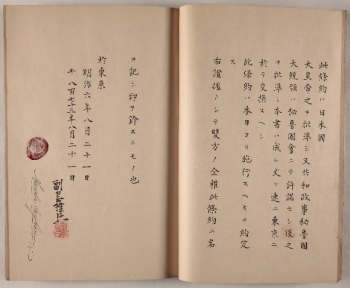 此條約ハ日本國
大皇帝之ヲ批準シ又共和政事秘魯國
大統領ハ秘魯國會ニテ許諾セシ後之
ヲ批準シ本書ハ成ル丈ケ速ニ東京ニ
於テ交換スヘシ
此條約ハ本日ヨリ施行スヘキヲ約定
ス
右證據トシテ雙方ノ全權此條約ニ名
ヲ記シ印ヲ鈐スルモノ也
於東京
明治六年八月二十一日
千八百七十三年八月二十一日
副島種臣